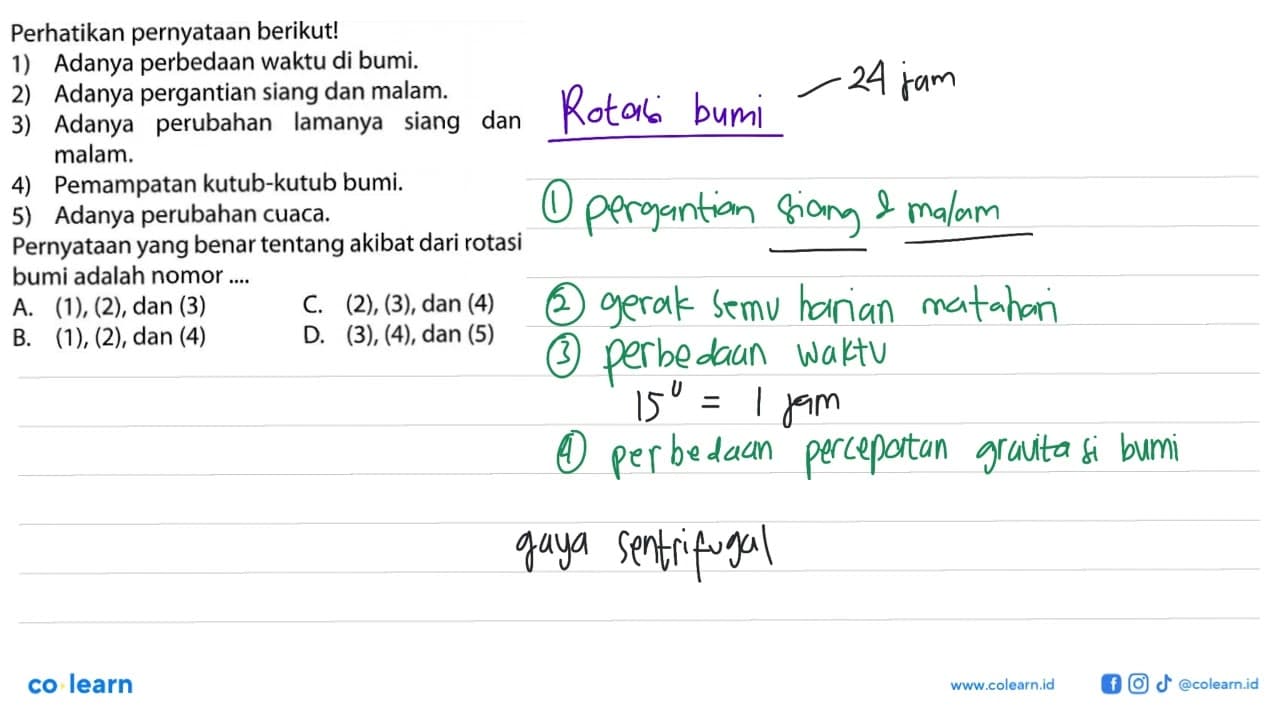 Perhatikan pernyataan berikut!
1) Adanya perbedaan waktu di bumi.
2) Adanya pergantian siang dan malam.
3) Adanya perubahan lamanya siang dan
malam.
4) Pemampatan kutub-kutub bumi.
5) Adanya perubahan cuaca.
Pernyataan yang benar tentang akibat dari rotasi
bumi adalah nomor ....
A. (1), (2), dan (3) C. (2), (3), dan (4)
B. (1), (2), dan (4) D. (3), (4), dan (5)
Rotasi bumi – 24 jam
① pergantian siang & malam
② gerak semu harian matahari
③ perbedaan waktu
15° = 1 jam
④ perbedaan percepatan gravitasi bumi
gaya sentrifugal
co learn
www.colearn.id @colearn.id